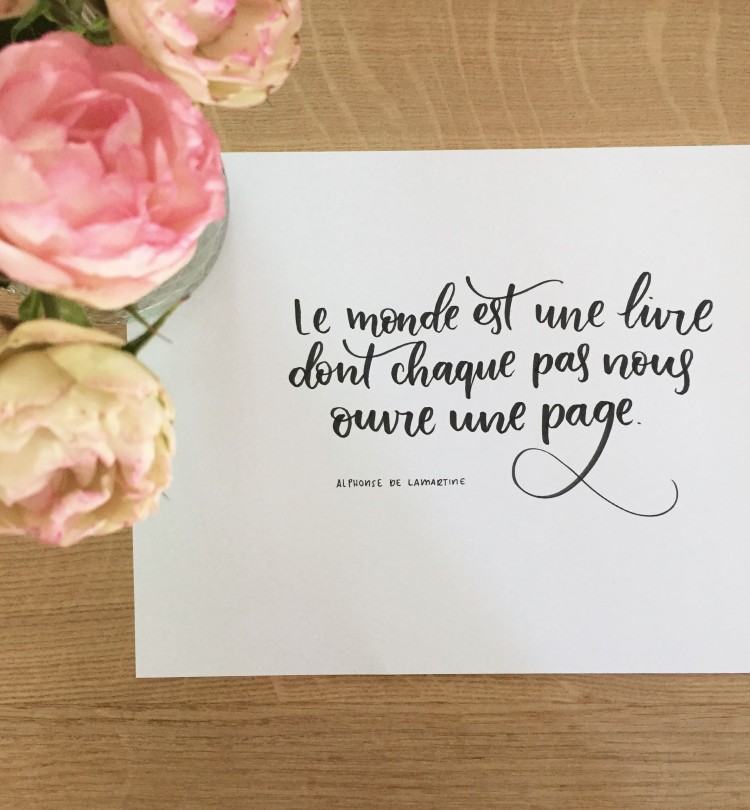 Le monde est une livre
dont chaque pas nous
ouvre une page.
ALPHONSE DE LAMARTINE